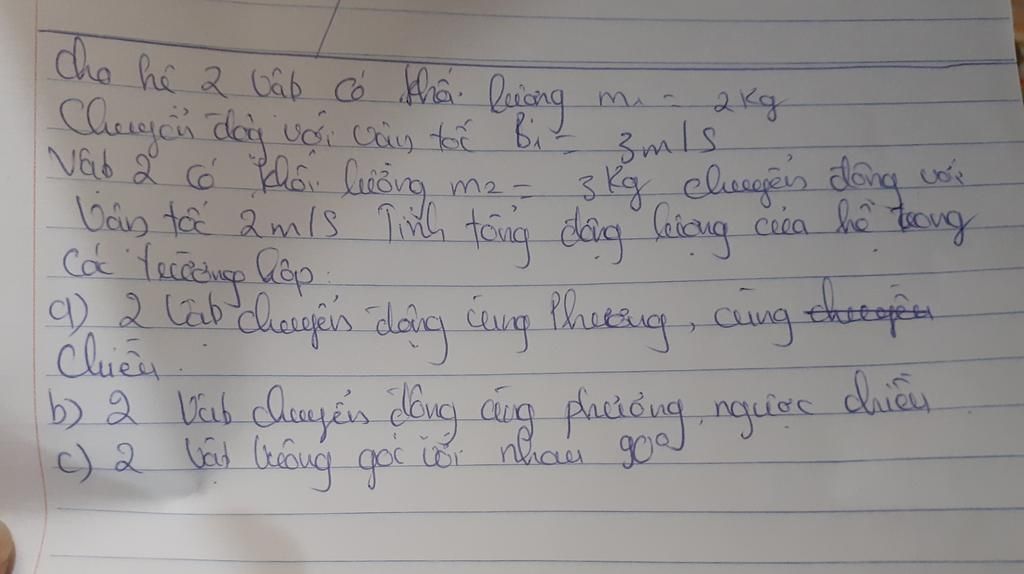 Cho hệ 2 vật có khối lượng m₁ = 2kg
Chuyển động với vận tốc v₁ = 3m/s
Vật 2 có khối lượng m₂ = 3kg chuyển động với
Vận tốc 2m/s Tính tổng động lượng của hệ trong
Các trường hợp:
a) 2 vật chuyển động cùng phương, cùng
Chiều.
b) 2 vật chuyển động cùng phương, ngược chiều
c) 2 vật vuông góc với nhau 90°